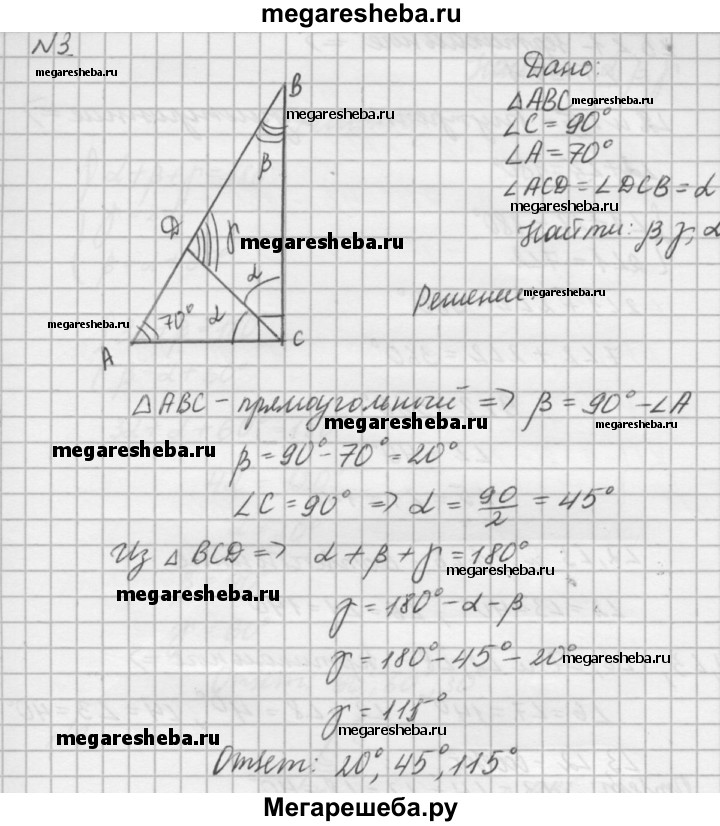 megaresheba.ru
N3
megaresheba.ru
B
megaresheba.ru
β
D
γ
megaresheba.ru
α
megaresheba.ru
70°
α
A
C
Дано:
△ABC megaresheba.ru
∠C = 90°
∠A = 70°
∠ACD = ∠DCB = α
megaresheba.ru
Найти: β, γ, α
Решение: megaresheba.ru
△ABC - прямоугольный => β = 90° - ∠A
megaresheba.ru
megaresheba.ru
megaresheba.ru
β = 90° - 70° = 20°
∠C = 90° => α = 90/2 = 45°
Из △BCD => α + β + γ = 180°
megaresheba.ru
megaresheba.ru
γ = 180° - α - β
γ = 180° - 45° - 20° megaresheba.ru
γ = 115°
megaresheba.ru
megaresheba.ru
Ответ: 20°, 45°, 115°
Мегарешеба.ру